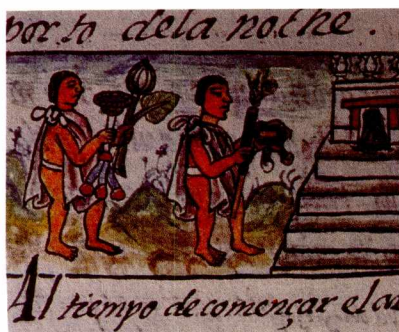 por to dela noche.
Al tiempo de començar el